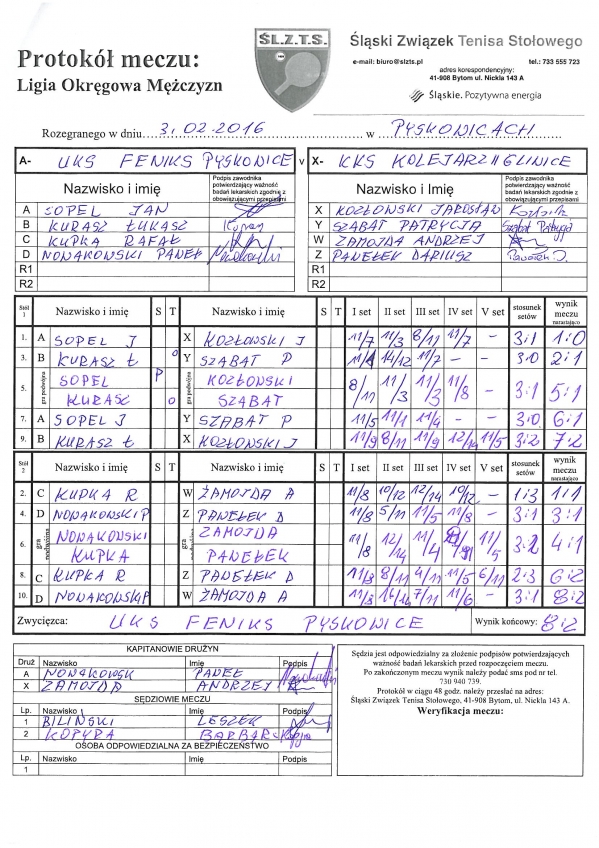 Ś.L.Z.T.S.
Protokół meczu:
Ligia Okręgowa Mężczyzn
Śląski Związek Tenisa Stołowego
e-mail: biuro@slzts.pl tel.: 733 555 723
adres korespondencyjny:
41-908 Bytom ul. Nickla 143 A
Śląskie. Pozytywna energia
Rozegranego w dniu 3.02.2016 w PYSKOWICACH
A- UKS FENIKS PYSKOWICE v X- KKS KOLEJARZ II GLIWICE
Nazwisko i imię Podpis zawodnika potwierdzający ważność badań lekarskich zgodnie z obowiązującymi przepisami Nazwisko i Imię Podpis zawodnika potwierdzający ważność badań lekarskich zgodnie z obowiązującymi przepisami
A SOPEL JAN X KOZŁOWSKI JAROSŁAW
B KURASZ ŁUKASZ Y SZABAT PATRYCJA Szabat Patrycja
C KUPKA RAFAŁ W ZAMOJDA ANDRZEJ
D NOWAKOWSKI PAWEŁ Z PAWEŁEK DARIUSZ Pawełek D.
R1 R1
R2 R2
Stół 1 Nazwisko i imię S T Nazwisko i imię S T I set II set III set IV set V set stosunek setów wynik meczu narastająco
1. A SOPEL J X KOZŁOWSKI J 11/7 11/3 8/11 11/7 - 3:1 1:0
3. B KURASZ Ł o Y SZABAT P 11/4 14/12 11/7 - - 3:0 2:1
5. gra podwójna SOPEL KURASZ P o KOZŁOWSKI SZABAT 8/11 11/3 11/3 11/8 - 3:1 5:1
7. A SOPEL J Y SZABAT P 11/5 11/1 11/4 - - 3:0 6:1
9. B KURASZ Ł X KOZŁOWSKI J 11/9 8/11 11/9 12/14 11/5 3:2 7:2
Stół 2 Nazwisko i imię S T Nazwisko i imię S T I set II set III set IV set V set stosunek setów wynik meczu narastająco
2. C KUPKA R W ZAMOJDA A 11/8 10/12 12/14 10/12 - 1:3 1:1
4. D NOWAKOWSKI P Z PAWEŁEK D 11/8 5/11 11/5 11/8 - 3:1 3:1
6. gra podwójna NOWAKOWSKI KUPKA ZAMOJDA PAWEŁEK 11/8 12/14 11/4 11/5 3:2 4:1
8. C KUPKA R Z PAWEŁEK D 11/3 8/11 4/11 11/5 6/11 2:3 6:2
10. D NOWAKOWSKI P W ZAMOJDA A 11/3 7/11 11/6 - 3:1 8:2
Zwycięzca: UKS FENIKS PYSKOWICE Wynik końcowy: 8:2
KAPITANOWIE DRUŻYN
Druż Nazwisko Imię Podpis
A NOWAKOWSK PAWEŁ
X ZAMOJDA ANDRZEJ
SĘDZIOWIE MECZU
Lp. Nazwisko Imię Podpis
1 BILIŃSKI LESZEK
2 KOPYRA BARBARA
OSOBA ODPOWIEDZIALNA ZA BEZPIECZEŃSTWO
Lp. Nazwisko Imię Podpis
1
Sędzia jest odpowiedzialny za złożenie podpisów potwierdzających
ważność badań lekarskich przed rozpoczęciem meczu.
Po zakończonym meczu wynik należy podać sms pod nr tel.
730 940 739.
Protokół w ciągu 48 godz. należy przesłać na adres:
Śląski Związek Tenisa Stołowego, 41-908 Bytom, ul. Nickla 143 A.
Weryfikacja meczu: